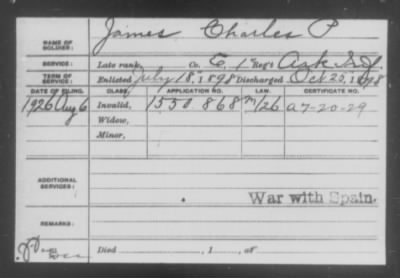 NAME OF SOLDIER: James Charles P
SERVICE: Late rank, Co. E, 1" Reg't Ark Inf.
TERM OF SERVICE: Enlisted July 18", 1898 Discharged Oct 25, 1898
DATE OF FILING. CLASS. APPLICATION NO. LAW. CERTIFICATE NO.
1926 Aug 6 Invalid, 1550 868 m/26 a7-20-29
Widow,
Minor,
ADDITIONAL SERVICES:
War with Spain.
REMARKS:
Died , 1 , at